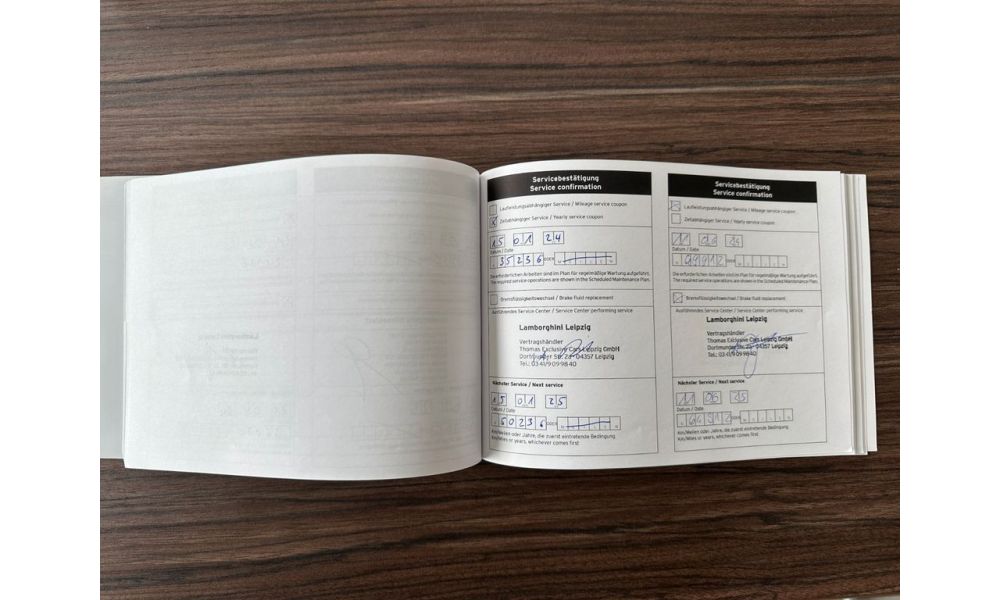 Servicebestätigung
Service confirmation
Laufleistungsabhängiger Service / Mileage service coupon
X Zeitabhängiger Service / Yearly service coupon
15 01 24
Datum / Date
35236 ODER
Die erforderlichen Arbeiten sind im Plan für regelmäßige Wartung aufgeführt.
The required service operations are shown in the Scheduled Maintenance Plan.
Bremsflüssigkeitswechsel / Brake fluid replacement
Ausführendes Service Center / Service Center performing service
Lamborghini Leipzig
Vertragshändler
Thomas Exclusive Cars Leipzig GmbH
Dortmunder Str. 2a · 04357 Leipzig
Tel.: 0341/9099840
Nächster Service / Next service
15 01 25
Datum / Date
50236 ODER
Km/Meilen oder Jahre, die zuerst eintretende Bedingung
Km/Miles or years, whichever comes first
Servicebestätigung
Service confirmation
X Laufleistungsabhängiger Service / Mileage service coupon
Zeitabhängiger Service / Yearly service coupon
11 06
Datum / Date
ODER
Die erforderlichen Arbeiten sind im Plan für regelmäßige Wartung aufgeführt.
The required service operations are shown in the Scheduled Maintenance Plan.
Bremsflüssigkeitswechsel / Brake fluid replacement
Ausführendes Service Center / Service Center performing service
Lamborghini Leipzig
Vertragshändler
Thomas Exclusive Cars Leipzig GmbH
Dortmunder Str. 2a · 04357 Leipzig
Tel.: 0341/9099840
Nächster Service / Next service
11 06 25
Datum / Date
ODER
Km/Meilen oder Jahre, die zuerst eintretende Bedingung
Km/Miles or years, whichever comes first